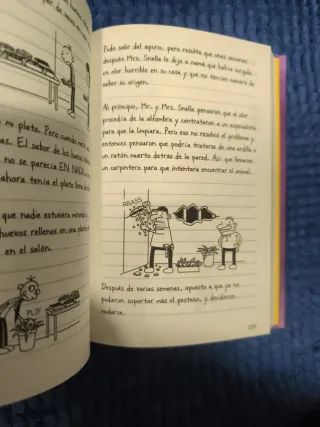 mi plato. Pero cuando
as. El sabor de los huevos
no se parecía EN NADA
ahora tenía el plato lleno
que nadie estuviera mirando
huevos rellenos en una planta
en el salón.
PLIF
Pude salir del apuro, pero resulta que unas semanas
después Mrs. Snella le dijo a mamá que había surgido
un olor horrible en su casa y que no tenían manera de
saber su origen.
Al principio, Mr. y Mrs. Snella pensaron que el olor
procedía de la alfombra y contrataron a un especialista
para que la limpiara. Pero eso no resolvió el problema, y
entonces pensaron que podría tratarse de una ardilla o
un ratón muerto detrás de la pared. Así que llamaron
un carpintero para que intentara encontrar el animal.
RRASS
Después de varias semanas, apuesto a que ya no
pudieron soportar más el pestazo, y decidieron
mudarse.